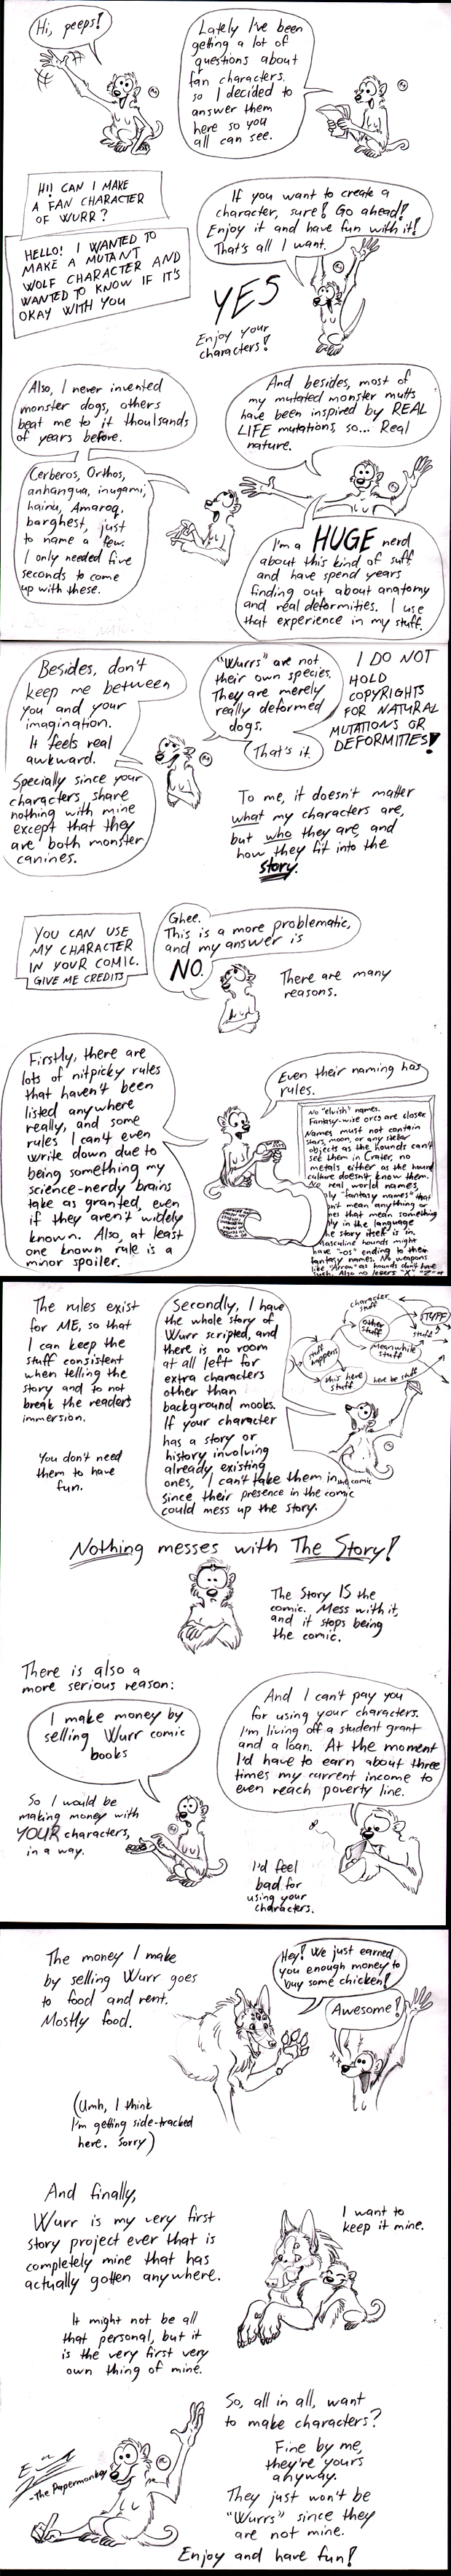 Hi, peeps!
Lately I've been
getting a lot of
questions about
fan characters.
so I decided to
answer them
here so you
all can see.
HI! CAN I MAKE
A FAN CHARACTER
OF WURR?
HELLO! I WANTED TO
MAKE A MUTANT
WOLF CHARACTER AND
WANTED TO KNOW IF IT'S
OKAY WITH YOU
If you want to create a
character, sure! Go ahead!
Enjoy it and have fun with it!
That's all I want.
YES
Enjoy your
characters!
Also, I never invented
monster dogs, others
beat me to it thoulsands
of years before.
Cerberos, Orthos,
anhangua, inugami,
hainu, Amaroq,
barghest, just
to name a few.
I only needed five
seconds to come
up with these.
And besides, most of
my mutated monster mutts
have been inspired by REAL
LIFE mutations, so... Real
nature.
I'm a HUGE nerd
about this kind of suff
and have spend years
finding out about anatomy
and real deformities. I use
that experience in my stuff.
Besides, don't
keep me between
you and your
imagination.
It feels real
awkward.
Specially since your
characters share
nothing with mine
except that they
are both monster
canines.
"Wurrs" are not
their own species.
They are merely
really deformed
dogs.
That's it.
I DO NOT
HOLD
COPYRIGHTS
FOR NATURAL
MUTATIONS OR
DEFORMITIES!
To me, it doesn't matter
what my characters are,
but who they are, and
how they fit into the
story.
YOU CAN USE
MY CHARACTER
IN YOUR COMIC.
GIVE ME CREDITS
Ghee.
This is a more problematic,
and my answer is
NO.
There are many
reasons.
Firstly, there are
lots of nitpicky rules
that haven't been
listed anywhere
really, and some
rules I can't even
write down due to
being something my
science-nerdy brains
take as granted, even
if they aren't widely
known. Also, at least
one known rule is a
minor spoiler.
Even their naming has
rules.
No "elvish" names.
Fantasy-wise orcs are closer
Names must not contain
stars, moon, or any stellar
objects as the hounds can't
see them in Crater, no
metals either as the hound
culture doesn't know them.
No real world names,
"fantasy names" that
mean anything or
that mean something
in the language
the story itself is in.
masculine hounds might
have "-os" ending to their
fantasy names. No weapons
like "Arrow" as hounds don't have
The rules exist
for ME, so that
I can keep the
stuff consistent
when telling the
story and to not
break the readers
immersion.
You don't need
them to have
fun.
Secondly, I have
the whole story of
Wurr scripted, and
there is no room
at all left for
extra characters
other than
background mooks.
If your character
has a story or
history involving
already existing
ones, I can't take them in the comic
since their presence in the comic
could mess up the story.
character
stuff
Other
stuff
STUFF
stuff
stuff
happens
Meanwhile
stuff
this here
stuff
here be stuff
Nothing messes with The Story!
The Story IS the
comic. Mess with it,
and it stops being
the comic.
There is also a
more serious reason:
I make money by
selling Wurr comic
books
So I would be
making money with
YOUR characters,
in a way.
And I can't pay you
for using your characters.
I'm living off a student grant
and a loan. At the moment
I'd have to earn about three
times my current income to
even reach poverty line.
I'd feel
bad for
using your
characters.
The money I make
by selling Wurr goes
to food and rent.
Mostly food.
Hey! We just earned
you enough money to
buy some chicken!
Awesome!
(Umh, I think
I'm getting side-tracked
here. Sorry)
And finally,
Wurr is my very first
story project ever that is
completely mine that has
actually gotten anywhere.
I want to
keep it mine.
It might not be all
that personal, but it
is the very first very
own thing of mine.
So, all in all, want
to make characters?
Fine by me,
they're yours
anyway.
They just won't be
"Wurrs" since they
are not mine.
Enjoy and have fun!
-The Papermonkey